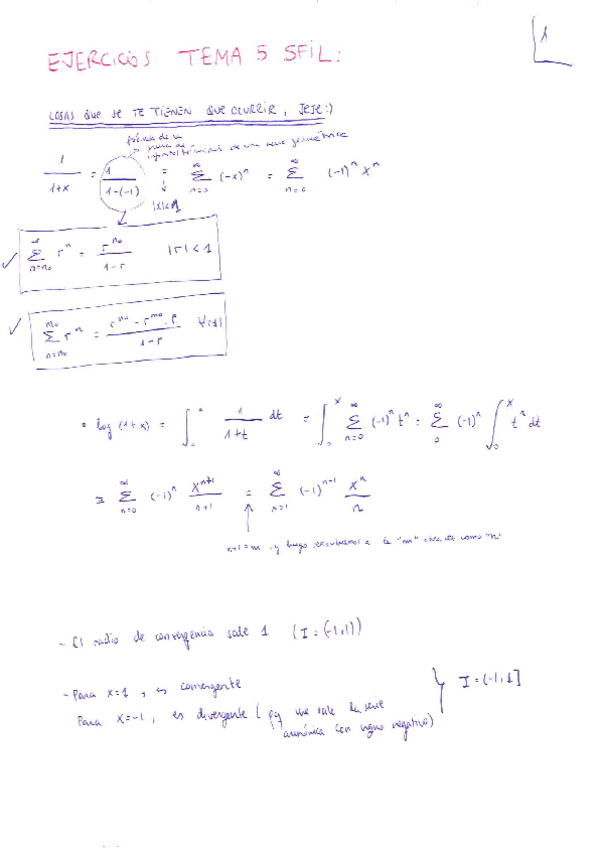 1
EJERCICIOS TEMA 5 SFIL:
COSAS QUE SE TE TIENEN QUE OCURRIR, JEJE:)
fórmula de la
suma de
infinitos términos de una serie geométrica
1/(1+x) = 1/(1-(-1)) = ∑_{n=0}^{∞} (-x)^n = ∑_{n=0}^{∞} (-1)^n x^n
|x|<1
✓ ∑_{n=n₀}^{∞} r^n = r^{n₀}/(1-r) |r| < 1
✓ ∑_{n=n₀}^{m₀} r^n = (r^{n₀} - r^{m₀}·r)/(1-r) ∀r≠1
• log (1+x) = ∫_0^x 1/(1+t) dt = ∫_0^x ∑_{n=0}^{∞} (-1)^n t^n = ∑_0^{∞} (-1)^n ∫_0^x t^n dt
= ∑_{n=0}^{∞} (-1)^n x^{n+1}/(n+1) = ∑_{n=1}^{∞} (-1)^{n-1} x^n/n
n+1=m y luego a la "m" otra vez como "n"
- El radio de convergencia sale 1 (I = (-1,1))
- Para x=1, es convergente
Para x=-1, es divergente (pq me sale la serie
armónica con signo negativo)
I = (-1,1]